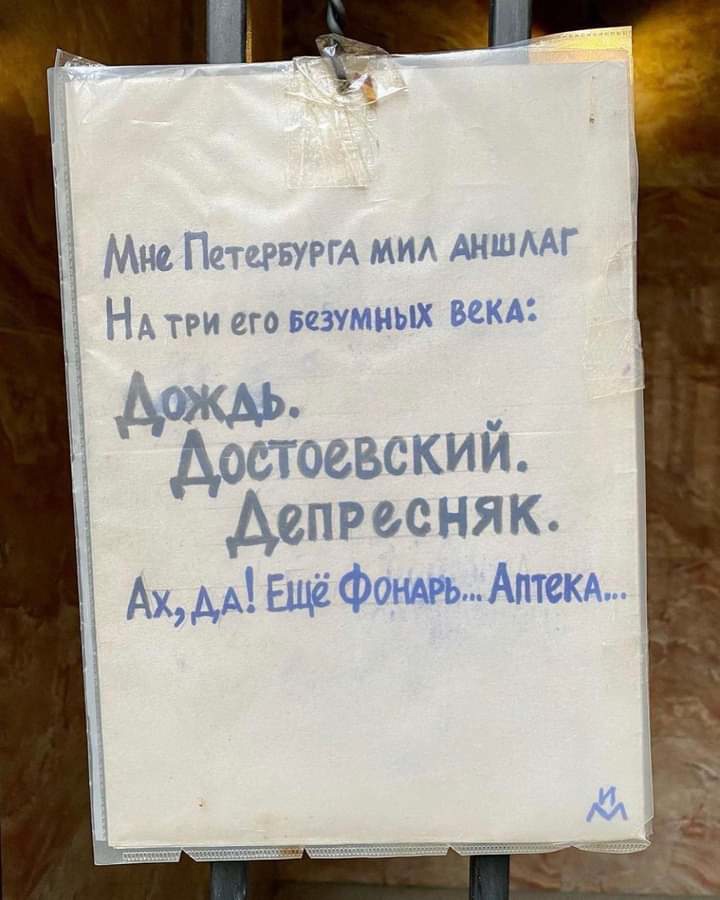 Мне Петербурга мил аншлаг
На три его безумных века:
Дождь.
Достоевский.
Депресняк.
Ах, да! Ещё Фонарь... Аптека...
ИМ